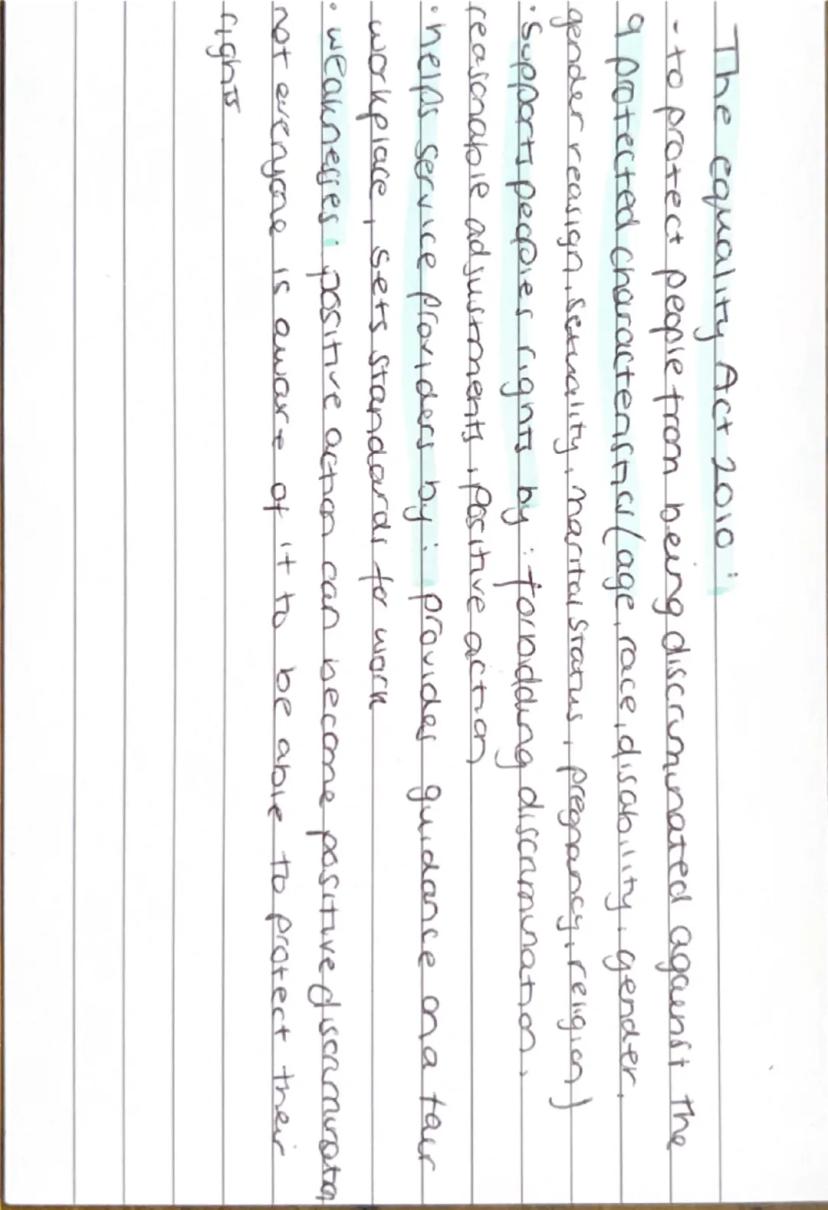 The equality Act 2010:
- to protect people from being discriminated against the
9 protected characteristics (age, race, disability, gender,
gender reasign, sexuality, marital status, pregnancy, religion)
• Supports peoples rights by: forbidding discrimination,
reasonable adjustments, positive action
• helps service providers by: provides guidance on a fair
workplace, sets standards for work
• weaknesses: positive action can become positive discrimination
not everyone is aware of it to be able to protect their
rights